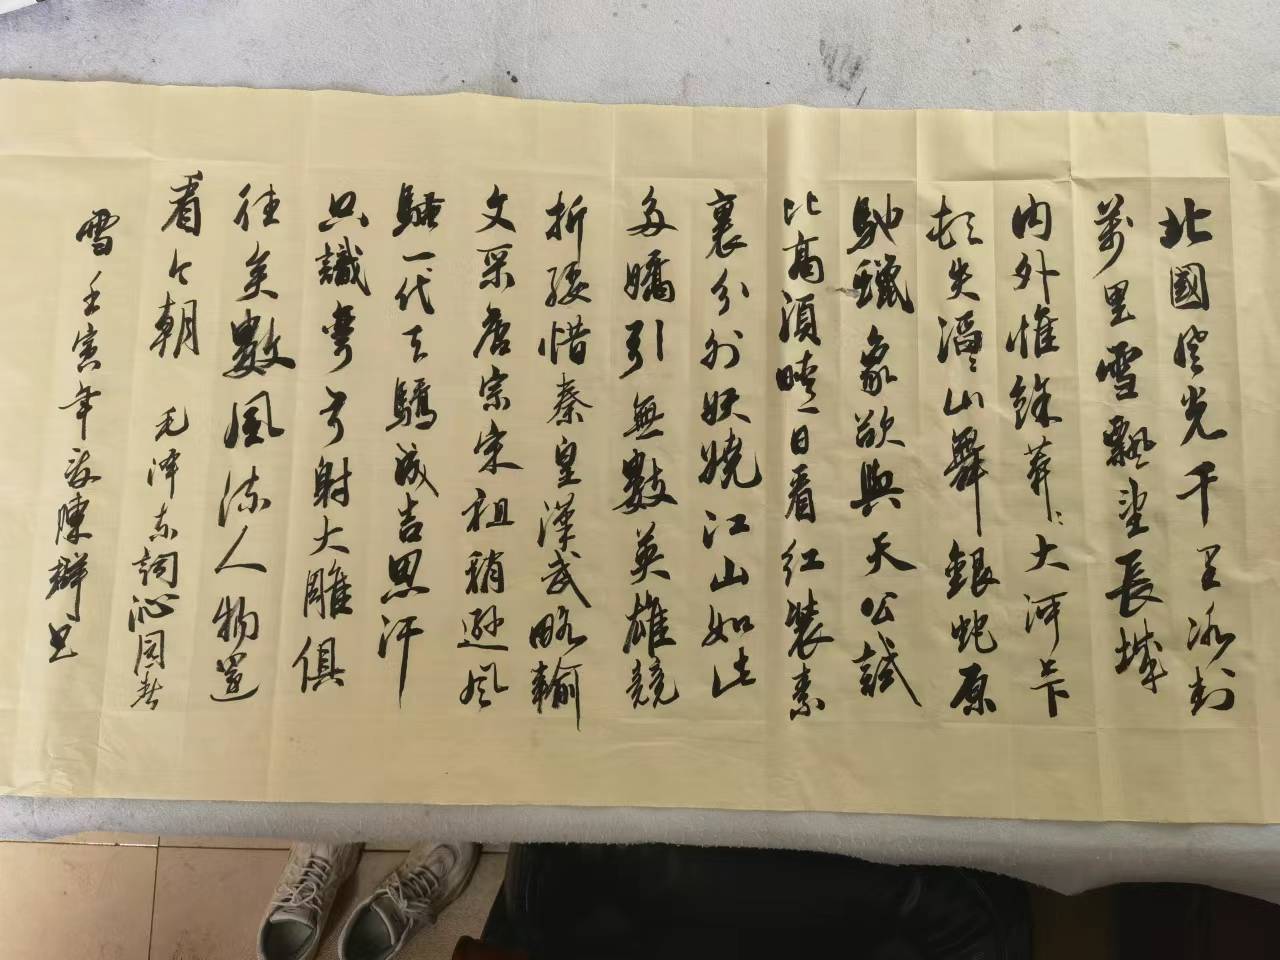 北國風光千里冰封
萬里雪飄望長城
內外惟餘莽〻大河上下
頓失滔〻山舞銀蛇原
馳蠟象欲與天公試
比高須晴一日看红裝素
裹分外妖嬈江山如此
多嬌引無數英雄競
折腰惜秦皇漢武略輸
文采唐宗宋祖稍遜風
騷一代天驕成吉思汗
只識彎弓射大雕俱
往矣數風流人物還
看今朝 毛泽东詞沁园春
雪 壬寅年 陳群书